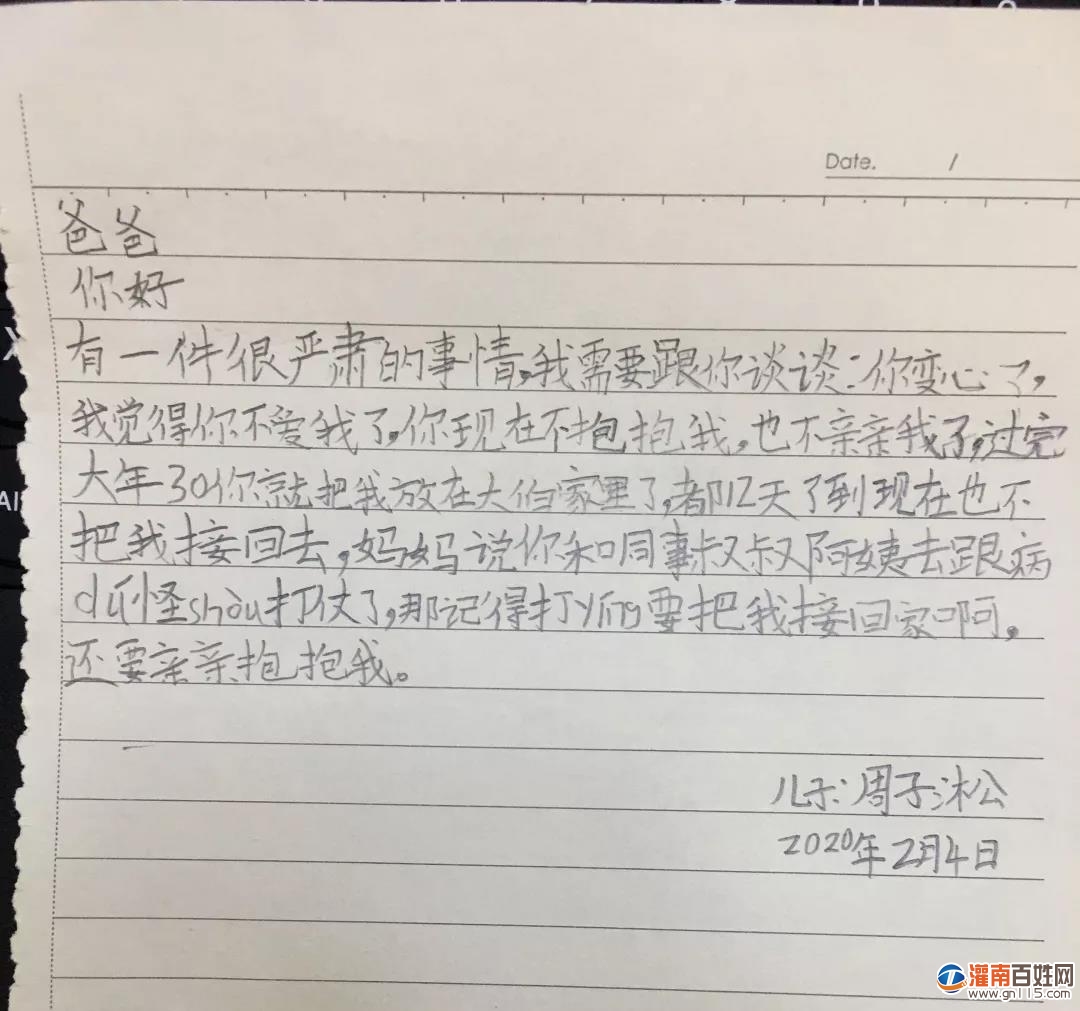 Date. /
爸爸
你好
有一件很严肃的事情,我需要跟你谈谈:你变心了,
我觉得你不爱我了,你现在不抱抱我,也不亲亲我了,过完
大年30你就把我放在大伯家里了,都12天了到现在也不
把我接回去,妈妈说你和同事叔叔阿姨去跟病
dú怪shòu打仗了,那记得打yíng要把我接回家啊,
还要亲亲抱抱我。
儿子:周子淞
2020年2月4日
灌南百姓网
www.gn115.com